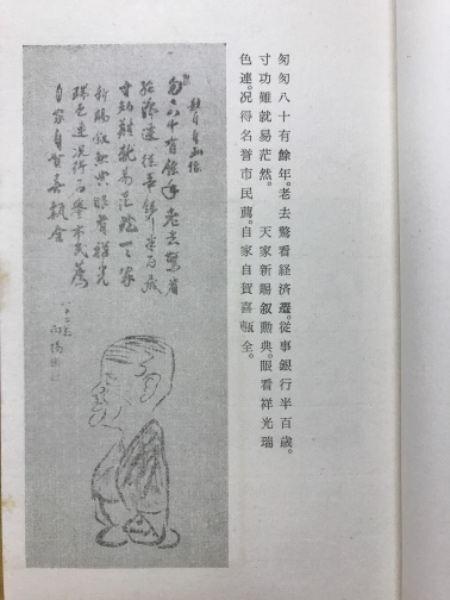 匆匆八十有餘年。老去驚看経済遷。従事銀行半百歳。
寸功難就易茫然。　天家新賜叙勲典。眼看祥光瑞
色連。况得名誉市民薦。自家自賀喜甑全。
題自画像
匆々八十有餘年老去驚看
経済遷従事銀行半百歳
寸功難就易茫然天家
新賜叙勲典眼看祥光
瑞色連况得名誉市民薦
自家自賀喜甑全